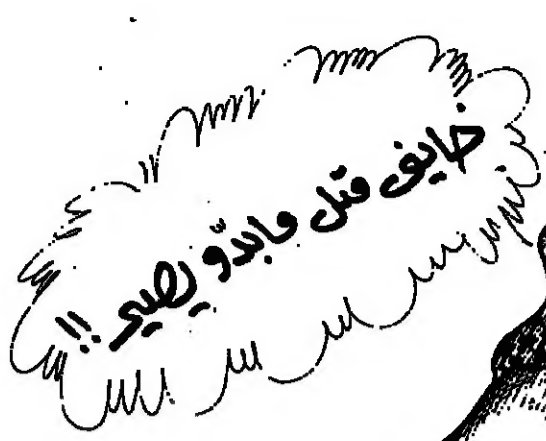 خايفى متل مابدّو يصير !!